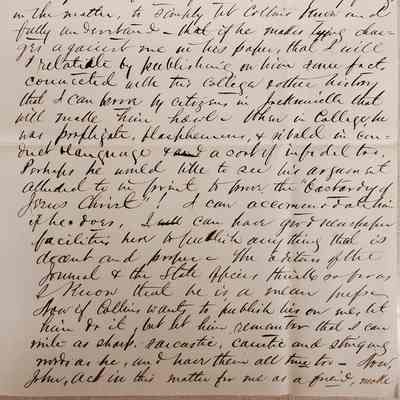 in the matter, to simply let Collins know and
fully understand – that if he makes lying char-
ges against me in his paper, that I will
retaliate by publishing on him some facts
connected with his College & other history
that I can prove by citizens in Jacksonville that
will make him howl. When in College he
was profligate, blasphemous, & ribald in con-
duct & language & a sort of infidel too.
Perhaps he would like to see his argument
alluded to in print to prove the "bastardy of
Jesus Christ"! I can accommodate him
if he does. I can have good newspaper
facilities here to publish anything that is
decent and proper. The editors of the
Journal & the State Officers think so far as
I know that he is a mean
Now if Collins wants to publish his on me, let
him do it, but let him remember that I can
write as sharp, sarcastic, caustic and stinging
words as he, and have them all true too – Now,
John, act in this matter for me as a friend, make